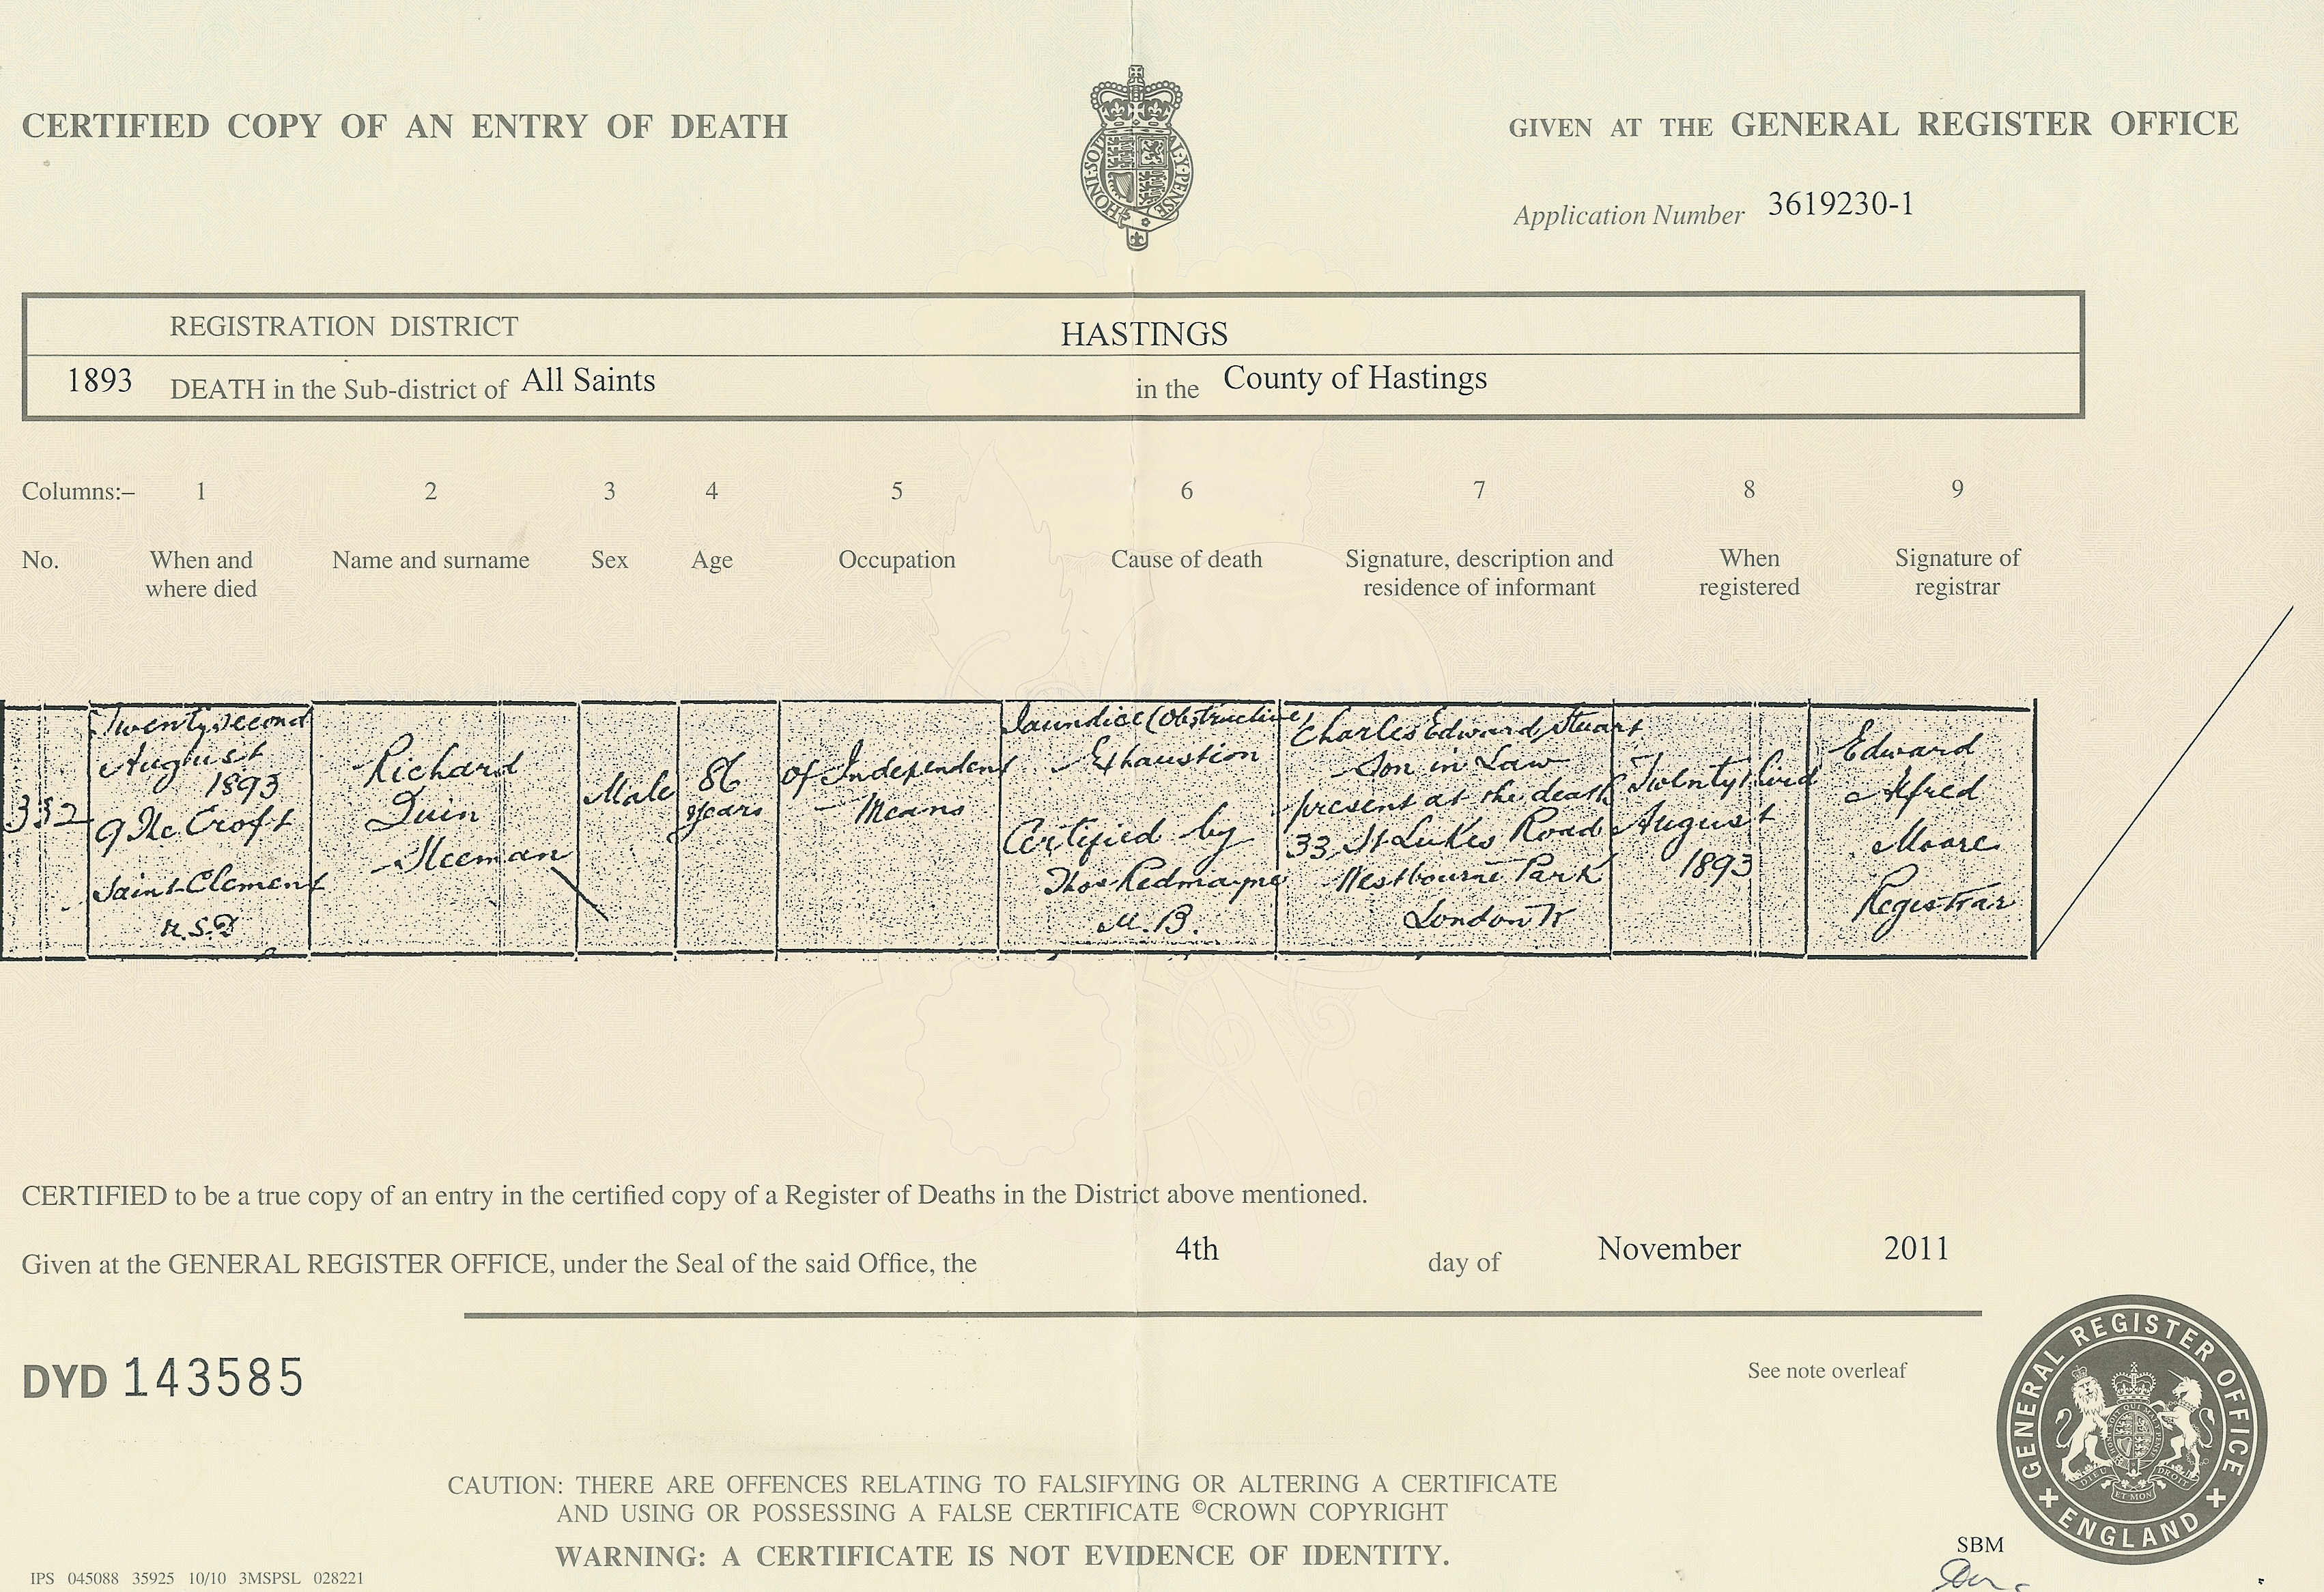 CERTIFIED COPY OF AN ENTRY OF DEATH
HONI·SOI AL·Y·PENSE
GIVEN AT THE GENERAL REGISTER OFFICE
Application Number 3619230-1
REGISTRATION DISTRICT HASTINGS
1893 DEATH in the Sub-district of All Saints in the County of Hastings
Columns:– 1 2 3 4 5 6 7 8 9
No. When and where died Name and surname Sex Age Occupation Cause of death Signature, description and residence of informant When registered Signature of registrar
332
Twenty second
August
1893
9 The Croft
Saint Clement
U.S.D
Richard
Quin
Heeman
Male
86
years
Of Independent
Means
Jaundice (Obstructive)
Exhaustion
Certified by
Thos Redmayne
M.B.
Charles Edward Stuart
Son in Law
present at the death
33 St Lukes Road
Westbourne Park
London W
Twenty third
August
1893
Edward
Alfred
Moore
Registrar
CERTIFIED to be a true copy of an entry in the certified copy of a Register of Deaths in the District above mentioned.
Given at the GENERAL REGISTER OFFICE, under the Seal of the said Office, the 4th day of November 2011
DYD 143585
See note overleaf
GENERAL REGISTER OFFICE
ENGLAND
DIEU ET MON DROIT
CAUTION: THERE ARE OFFENCES RELATING TO FALSIFYING OR ALTERING A CERTIFICATE
AND USING OR POSSESSING A FALSE CERTIFICATE ©CROWN COPYRIGHT
WARNING: A CERTIFICATE IS NOT EVIDENCE OF IDENTITY.
SBM
IPS 045088 35925 10/10 3MSPSL 028221